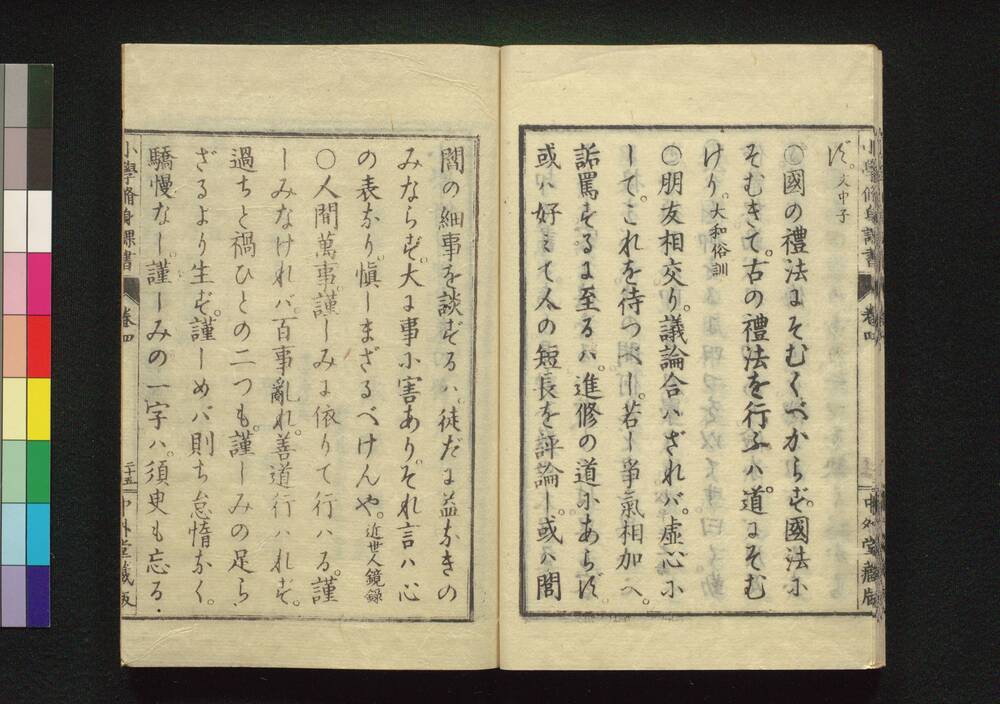 ず。文中子
○國の禮法にそむくべからず。國法に
そむきて。古の禮法を行ふハ。道にそむ
けり。大和俗訓
○朋友相交り。議論合ハざれバ。虚心に
して。これを待つ
べし。若し爭氣相加へ。
詬罵するに至るハ。進修の道にあらず。
或ハ好ミて人の短長を評論し。或ハ閨
閤の細事を談ずるハ。徒だに益なきの
みならず。大に事に害あり。それ言ハ心
の表なり。愼しまざるべけんや。近世人鏡録
○人間萬事。謹しみに依りて行ハる。謹
しみなけれバ。百事亂れ。善道行ハれず。
過ちと禍ひとの二つも。謹しみの足ら
ざるより生ず。謹しめバ則ち怠惰なく。
驕慢なし。謹しみの一字ハ。須臾も忘る
小學脩身課書 卷四 二十五 中外堂藏版